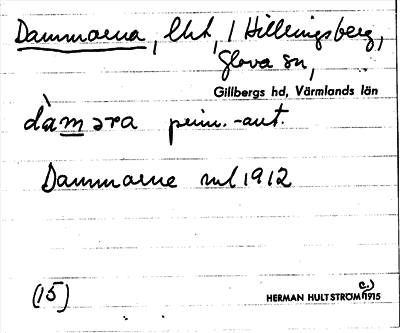 Dammarna, lht, / Hillringsberg,
Glava sn,
Gillbergs hd, Värmlands län
dàməra prim.-aut.
Dammarne ml 1912
(15)
HERMAN HULTSTRÖM c.) 1915